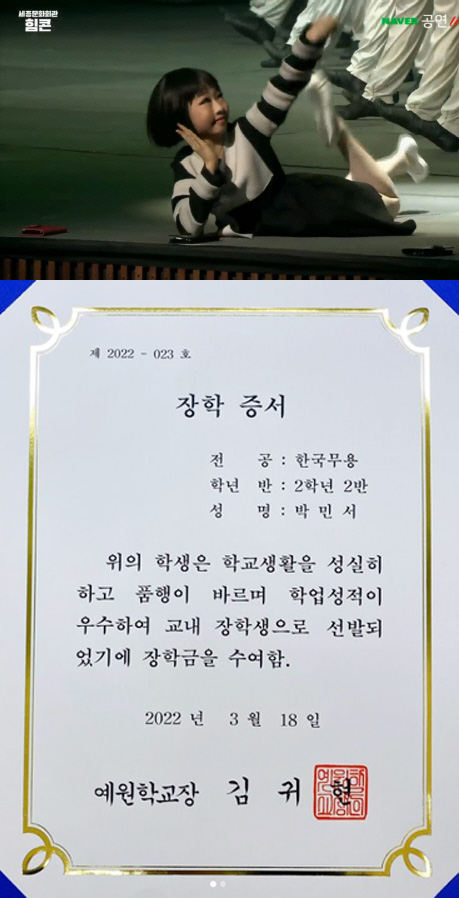 세종문화회관
힘콘
NAVER 공연
제 2022 - 023 호
장학 증서
전 공 : 한국무용
학년 반 : 2학년 2반
성 명 : 박 민 서
위의 학생은 학교생활을 성실히
하고 품행이 바르며 학업성적이
우수하여 교내 장학생으로 선발되
었기에 장학금을 수여함.
2022 년 3 월 18 일
예원학교장 김 귀 현